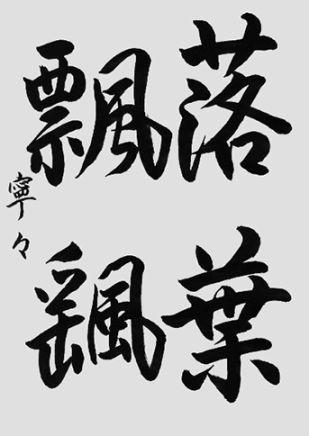 落葉
飄颻
寧々